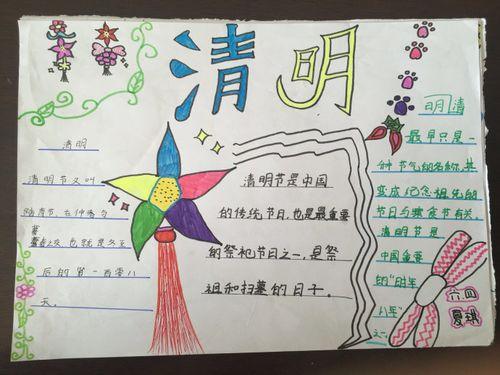 清明
清明
清明节又叫
踏青节，在仲春与
暮春之交，也就是冬至
后的第一百零八
天。
清明节是中国
的传统节日，也是最重要
的祭祀节日之一，是祭
祖和扫墓的日子。
明清
最早只是一
种节气的名称，其
变成纪念祖先的
节日与寒食节有关。
清明节是
中国重要
的"时年
八节"
之一
六四
夏琪